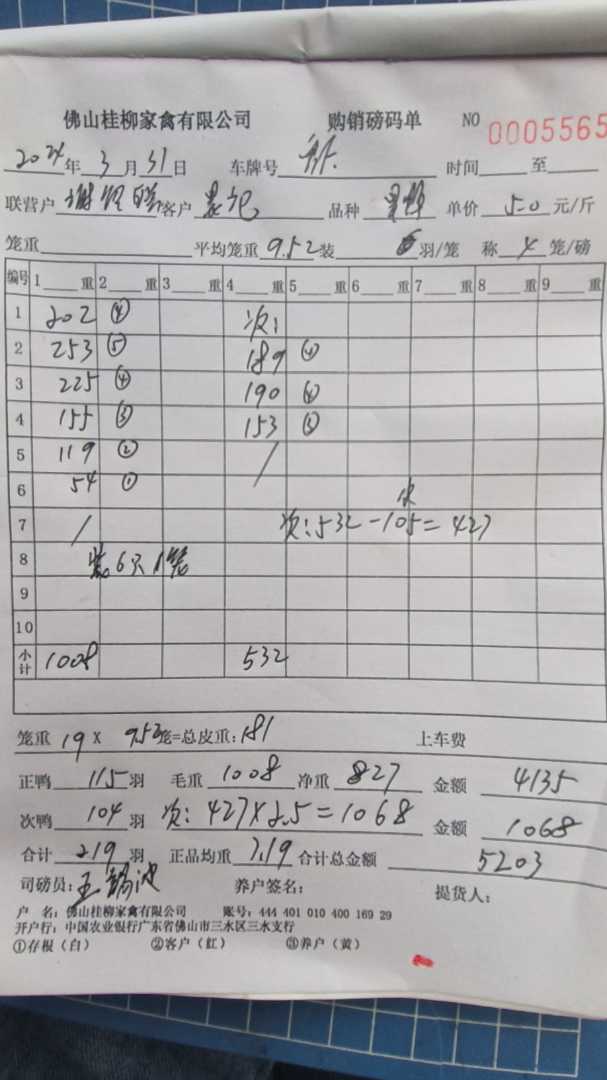 佛山桂柳家禽有限公司 购销磅码单 NO 0005565
2024年3月31日 车牌号 时间 至
联营户 客户 品种 单价 5.0 元/斤
笼重 平均笼重 9.52 装 6 羽/笼 称 4 笼/磅
编号 1 重 2 重 3 重 4 重 5 重 6 重 7 重 8 重 9 重
1 202 ④ 次:
2 253 ⑤ 189 ④
3 225 ④ 190 ④
4 155 ③ 153 ③
5 119 ② /
6 54 ①
7 / 次:532-105=427
8 装6只1笼
9
10
小计 1008 532
笼重 19 × 9.52 笼=总皮重:181 上车费
正鸭 115 羽 毛重 1008 净重 827 金额 4135
次鸭 104 羽 次:427×2.5=1068 金额 1068
合计 219 羽 正品均重 7.19 合计总金额 5203
司磅员:王 养户签名: 提货人:
户 名:佛山桂柳家禽有限公司 账号:444 401 010 400 169 29
开户行:中国农业银行广东省佛山市三水区三水支行
①存根(白) ②客户(红) ③养户(黄)